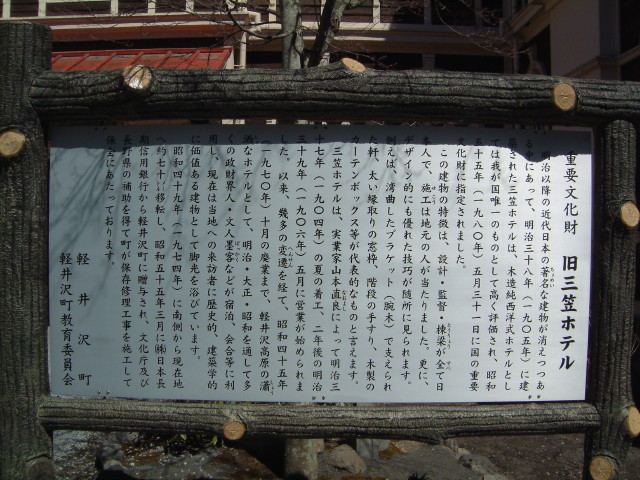 重要文化財　旧三笠ホテル
明治以降の近代日本の著名な建物が消えつつあ
る中にあって、明治三十八年（一九〇五年）に建
築された三笠ホテルは、木造純西洋式ホテルとし
ては我が国唯一のものとして高く評価され、昭和
五十五年（一九八〇年）五月三十一日に国の重要
文化財に指定されました。
この建物の特徴は、設計・監督・棟梁が全て日
本人で、施工は地元の人が当たりました。更に、
デザイン的にも優れた技巧が随所に見られます。
例えば、湾曲したブラケット（腕木）で支えられ
た軒、太い縁取りの窓枠、階段の手すり、木製の
カーテンボックス等が代表的なものと言えます。
三笠ホテルは、実業家山本直良によって明治三
十七年（一九〇四年）の夏の着工、二年後の明治
三十九年（一九〇六年）五月に営業が始められま
した。以来、幾多の変遷を経て、昭和四十五年
（一九七〇年）十月の廃業まで、軽井沢高原の瀟
洒なホテルとして、明治・大正・昭和を通して多
くの政財界人・文人墨客などが宿泊、会合等に利
用し、現在は当地への来訪者に歴史的、建築学的
に価値ある建物として脚光を浴びています。
昭和四十九年（一九七四年）に南側から現在地
へ約七十㍍移転し、昭和五十五年三月に㈱日本長
期信用銀行から軽井沢町に贈与され、文化庁及び
長野県の補助を得て町が保存修理工事を施工して
保全にあたっております。
軽井沢町
軽井沢町教育委員会